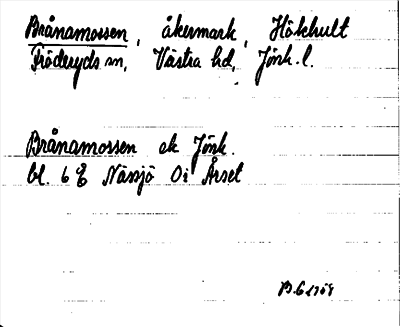 Brånamossen, åkermark, Hökhult
Fröderyds sn, Västra hd, Jönk. l.
Brånamossen ek Jönk.
bl. 6 Nässjö Oi Årset